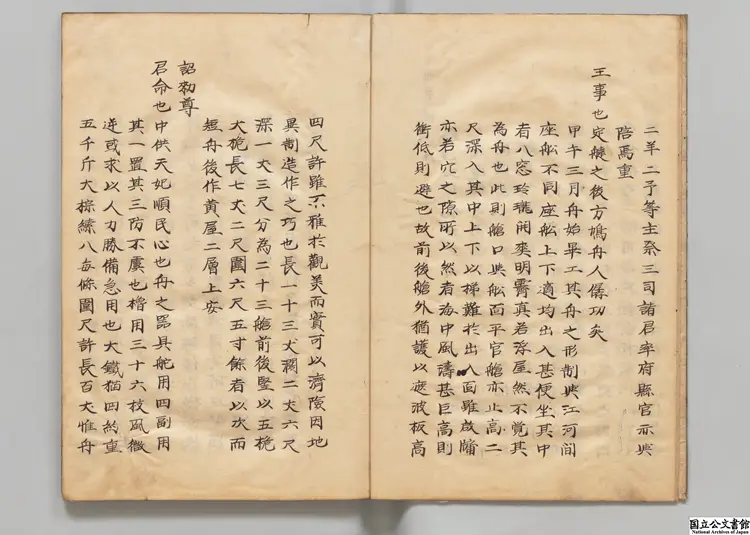 二羊二予等主祭三司諸君率府縣官亦與
陪焉重
王事也定艤之後方鳩舟人僝功矣
甲午三月舟始畢工其舟之形制與江河間
座舩不同座舩上下適均出入甚便坐其中
者八窓玲瓏開爽明霽真若浮屋然不覺其
為舟也此則艙口與舩面平官艙亦止高二
尺深入其中上下以梯難於出入面雖啟牖
亦若穴之隙所以然者海中風濤甚巨高則
衝低則避也故前後艙外猶護以遮波板高
四尺許雖不雅於觀美而實可以濟險因地
異制造作之巧也長一十三丈濶二丈六尺
深一丈三尺分為二十三艙前後竪以五桅
大桅長七丈二尺圍六尺五寸餘者以次而
短舟後作黄屋二層上安
詔勑尊
君命也中供天妃順民心也舟之器具舵用四副用
其一置其三防不虞也櫓用三十六枝風微
逆或求以人力勝備急用也大鐵猫四約重
五千斤大棕䌫八每條圍尺許長百丈惟舟
国立公文書館
National Archives of Japan